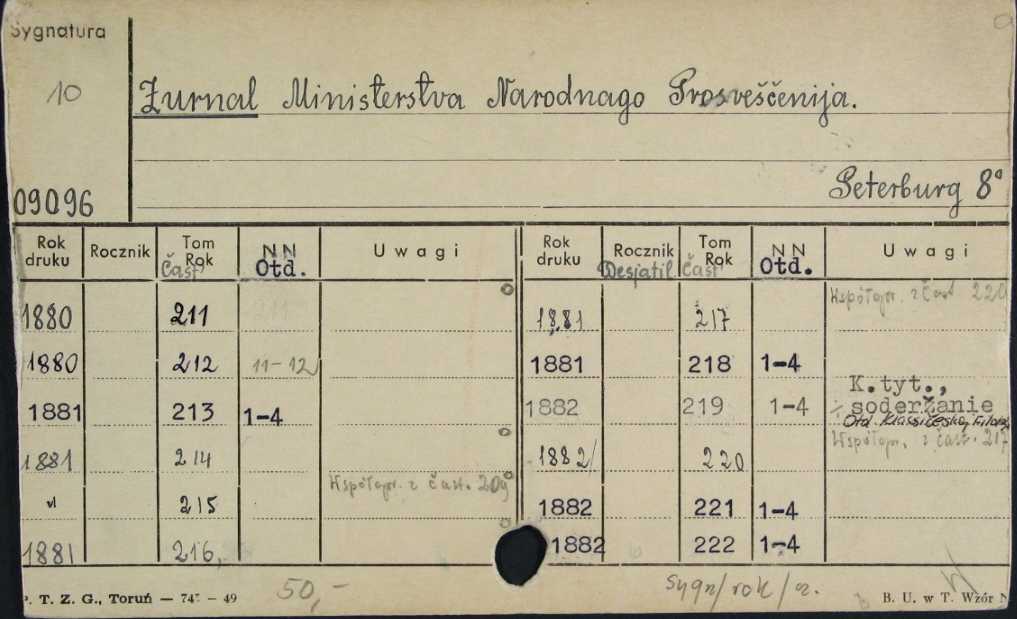 Sygnatura
10
Žurnal Ministerstva Narodnago Prosveščenija.
09096
Peterburg 8°
Rok druku Rocznik Tom Rok Čast' NN Otd. Uwagi
1880 211
1880 212 11-12
1881 213 1-4
1881 214
215 Współopr. z čast. 209
1881 216
Rok druku Rocznik Desjatil. Tom Rok Čast' NN Otd. Uwagi
1881 217 Współopr. z čast 220
1881 218 1-4
1882 219 1-4 K.tyt., soderžanie
Otd. Klassičeskoj Filolog
1882 220 Współopr. z čast. 217
1882 221 1-4
1882 222 1-4
50,-
sygn/rok/
P. T. Z. G., Toruń — 747 — 49
B. U. w T. Wzór N